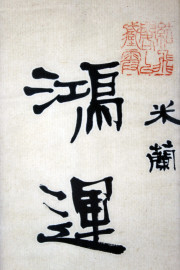 米蘭
鴻運